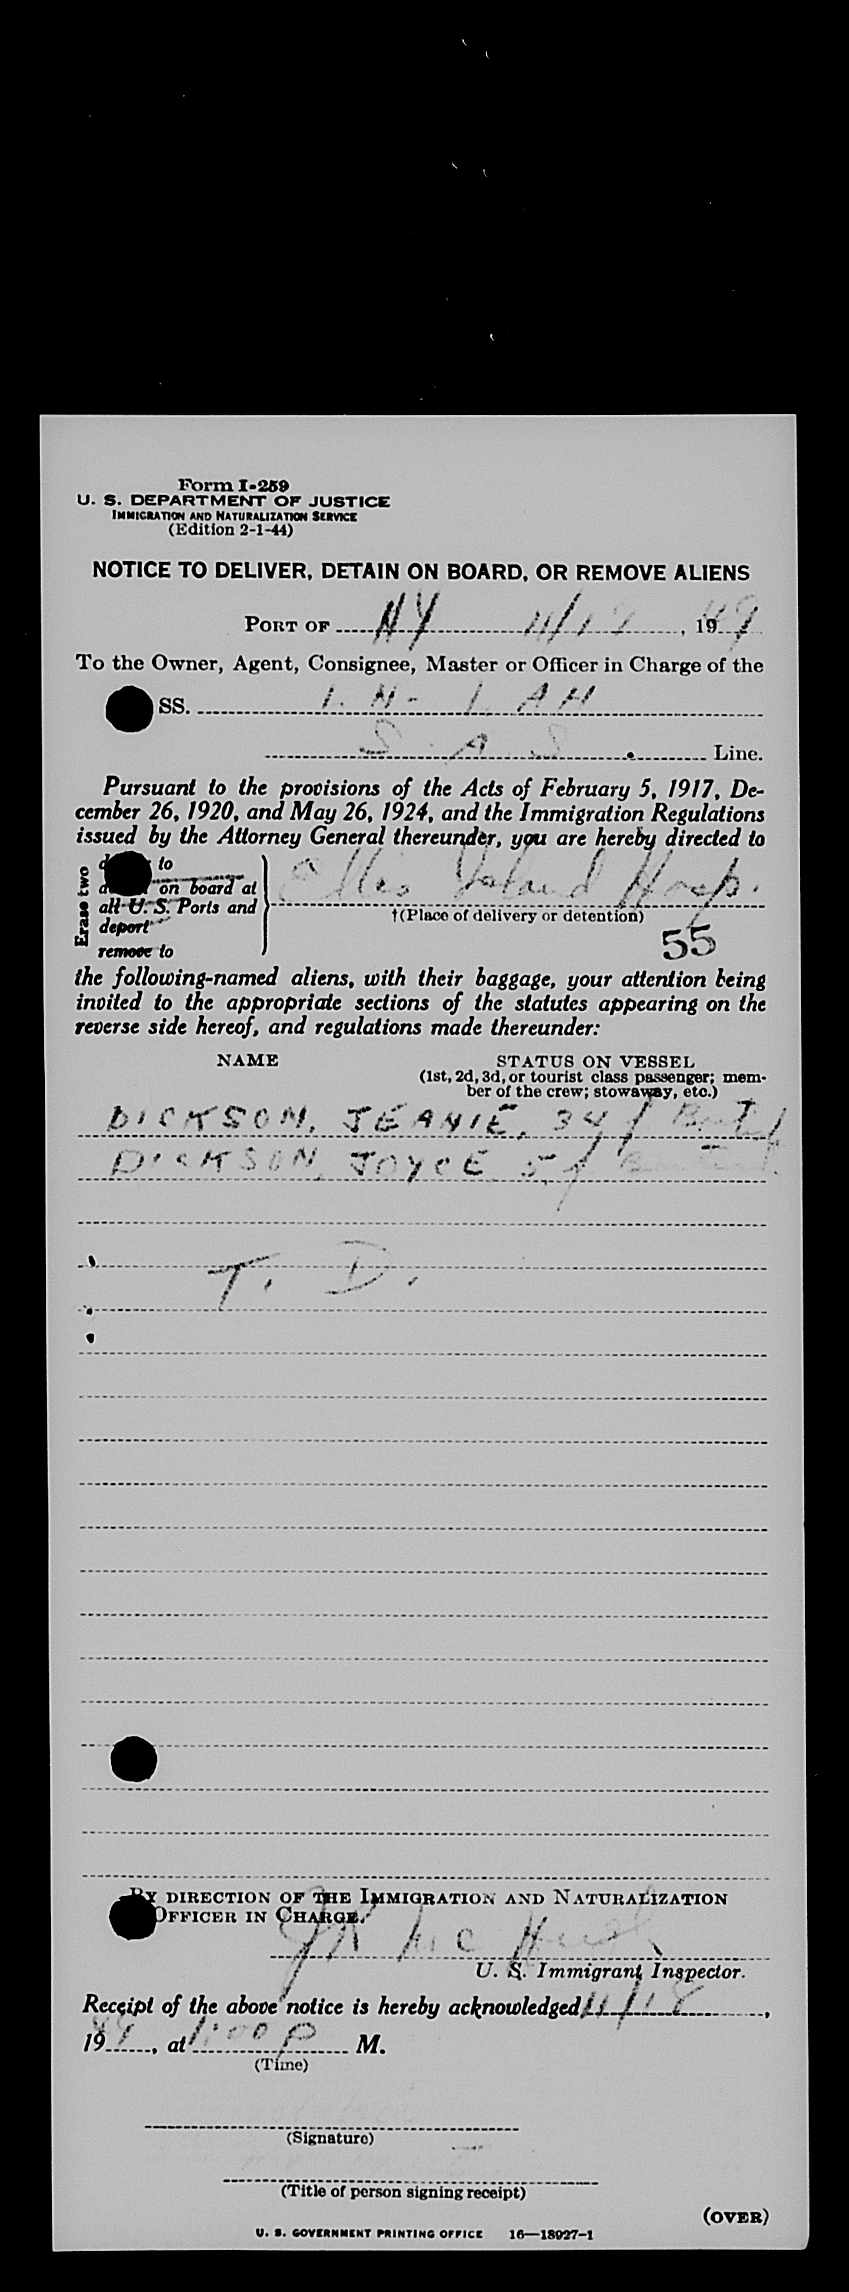 Form I-259
U. S. DEPARTMENT OF JUSTICE
IMMIGRATION AND NATURALIZATION SERVICE
(Edition 2-1-44)
NOTICE TO DELIVER, DETAIN ON BOARD, OR REMOVE ALIENS
PORT OF NY 11/19, 1949
To the Owner, Agent, Consignee, Master or Officer in Charge of the
SS.
S. A. S. Line.
Pursuant to the provisions of the Acts of February 5, 1917, De-
cember 26, 1920, and May 26, 1924, and the Immigration Regulations
issued by the Attorney General thereunder, you are hereby directed to
Erase two
to
on board at
all U. S. Ports and
deport
remove to
Ellis Island Hosp.
†(Place of delivery or detention)
55
the following-named aliens, with their baggage, your attention being
invited to the appropriate sections of the statutes appearing on the
reverse side hereof, and regulations made thereunder:
NAME STATUS ON VESSEL
(1st, 2d, 3d, or tourist class passenger; mem-
ber of the crew; stowaway, etc.)
DICKSON, JEANIE, 34 f
DICKSON, JOYCE 5 f
T. D.
BY DIRECTION OF THE IMMIGRATION AND NATURALIZATION
OFFICER IN CHARGE.
U. S. Immigrant Inspector.
Receipt of the above notice is hereby acknowledged 11/18,
1949, at 1:00 P M.
(Time)
(Signature)
(Title of person signing receipt)
(OVER)
U. S. GOVERNMENT PRINTING OFFICE 16—18927-1